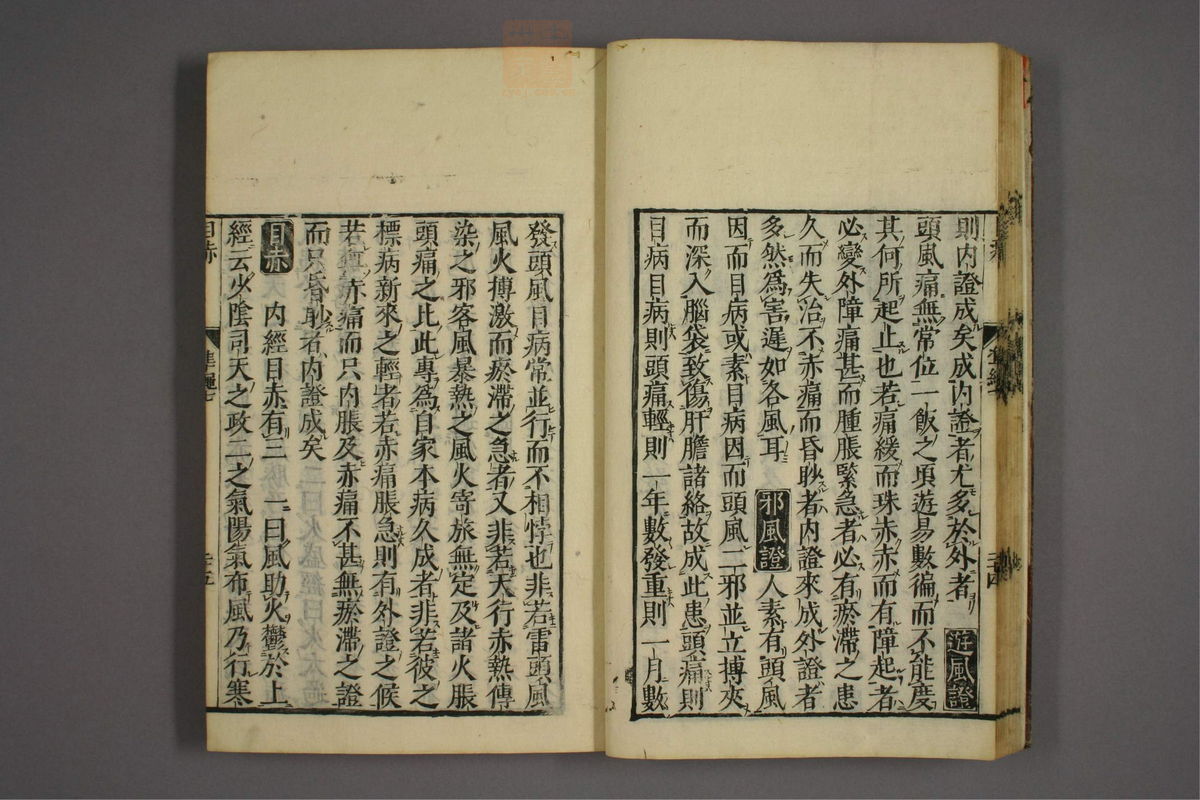 則内證成矣成内證者尤多於外者 遊風證
頭風痛無常位一飯之頃遊易數徧而不能度
其何所起止也若痛緩而珠赤赤而有障起者
必變外障痛甚而腫脹緊急者必有瘀滯之患
久而失治不赤痛而昏眇者内證來成外證者
多然爲害遲如各風耳 邪風證 人素有頭風
因而目病或素目病因而頭風二邪並立搏夾
而深入腦袋致傷肝膽諸絡故成此患頭痛則
目病目病則頭痛輕則一年數發重則一月數
發頭風目病常並行而不相悖也非若雷頭風
風火搏激而瘀滯之急者又非若天行赤熱傳
染之邪客風暴熱之風火寄旅無定及諸火脹
頭痛之比此專爲自家本病久成者非若彼之
標病新來之輕者若赤痛脹急則有外證之候
若無赤痛而只内脹及赤痛不甚無瘀滯之證
而只昏眇者内證成矣
目赤 内經目赤有三 一曰風助火鬱於上
經云少陰司天之政二之氣陽氣布風乃行寒
目赤
二十五